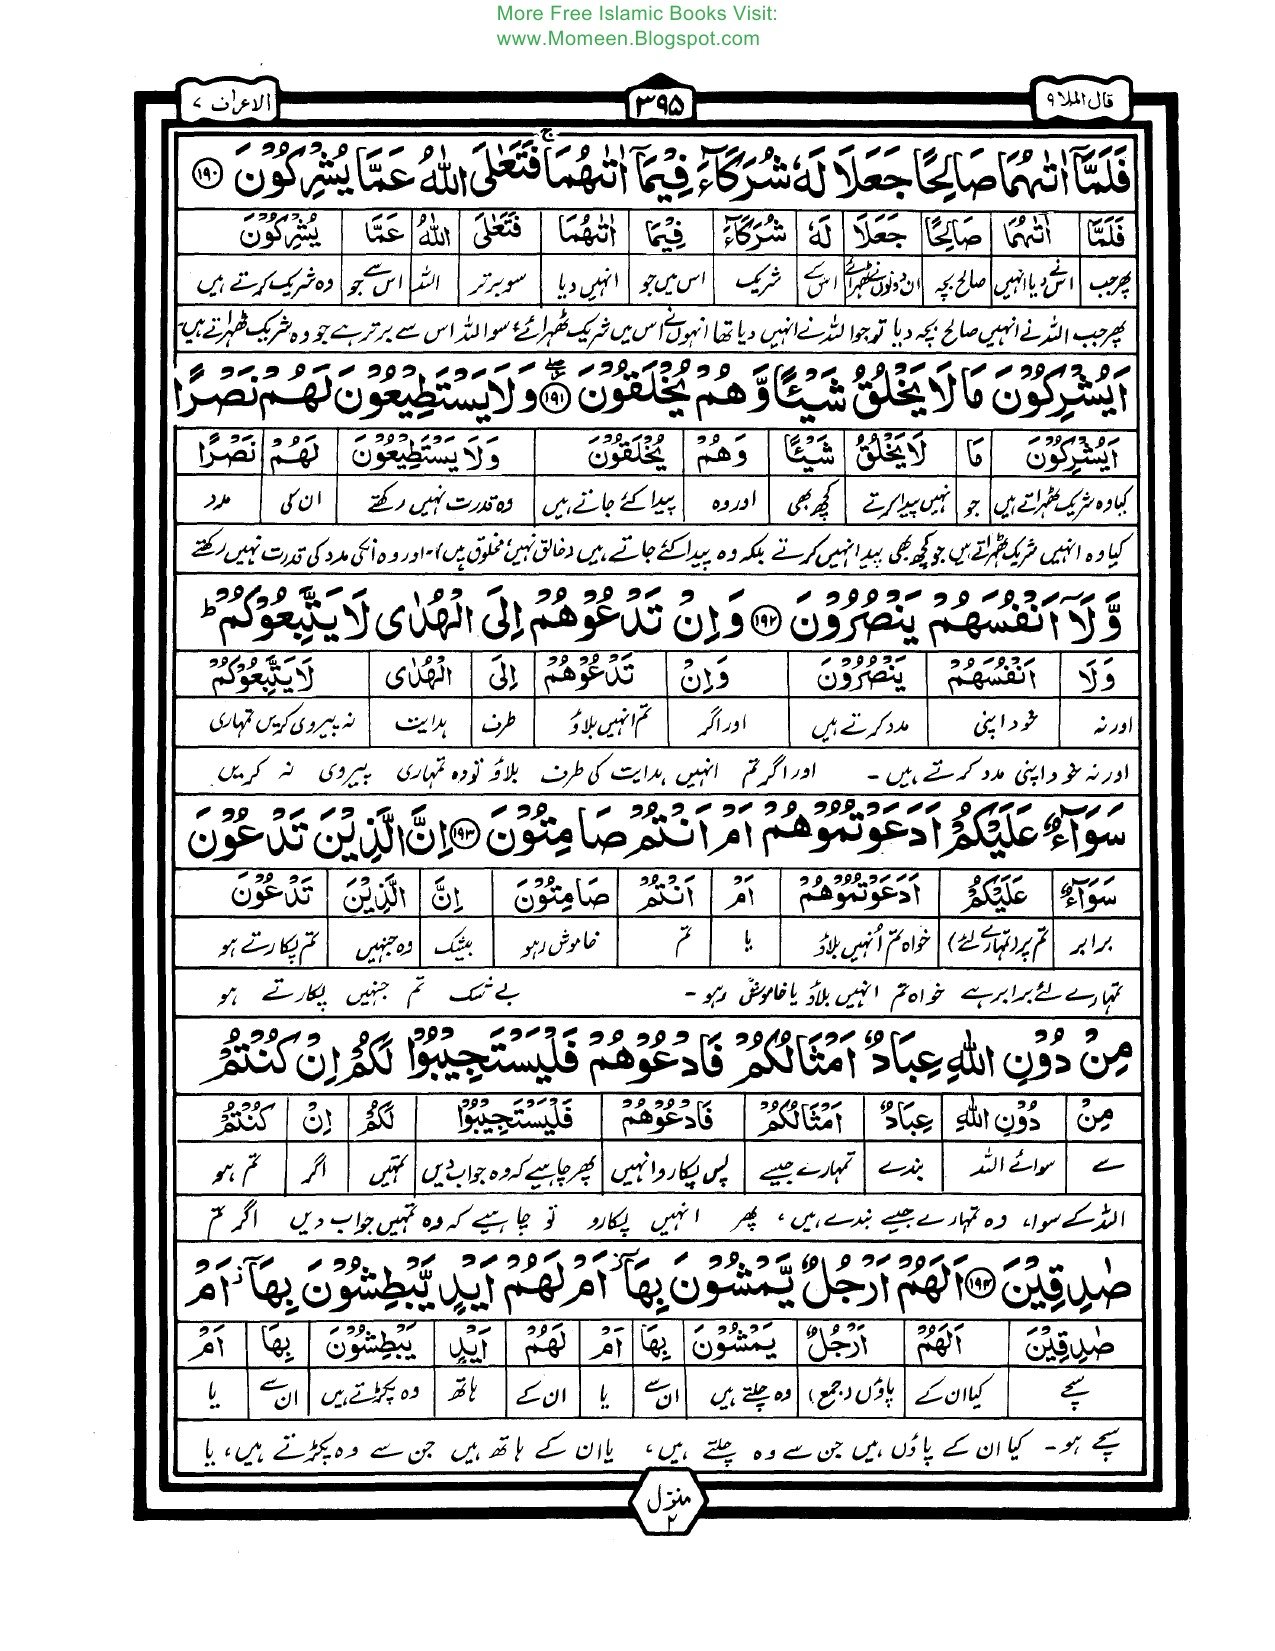 More Free Islamic Books Visit:
www.Momeen.Blogspot.com
قال الملا ۹
۳۹۵
الاعراف ۷
فَلَمَّآ اٰتٰىهُمَا صَالِحًا جَعَلَا لَهٗ شُرَكَآءَ فِيْمَآ اٰتٰىهُمَا ۚ فَتَعٰلَى اللّٰهُ عَمَّا يُشْرِكُوْنَ ۱۹۰
فَلَمَّا اٰتٰىهُمَا صَالِحًا جَعَلَا لَهٗ شُرَكَآءَ فِيْمَا اٰتٰىهُمَا فَتَعٰلَى اللّٰهُ عَمَّا يُشْرِكُوْنَ
پھر جب اس نے دیا انہیں صالح بچہ ان دونوں نے ٹھہرائے اس کے شریک اس میں جو انہیں دیا سو برتر اللہ اس سے جو وہ شریک کرتے ہیں
پھر جب اللہ نے انہیں صالح بچہ دیا تو جو اللہ نے انہیں دیا تھا انہوں نے اس میں شریک ٹھہرائے، سو اللہ اس سے برتر ہے جو وہ شریک ٹھہراتے ہیں
اَيُشْرِكُوْنَ مَا لَا يَخْلُقُ شَيْـًٔا وَّهُمْ يُخْلَقُوْنَ ۱۹۱ وَلَا يَسْتَطِيْعُوْنَ لَهُمْ نَصْرًا
اَيُشْرِكُوْنَ مَا لَا يَخْلُقُ شَيْـًٔا وَهُمْ يُخْلَقُوْنَ وَلَا يَسْتَطِيْعُوْنَ لَهُمْ نَصْرًا
کیا وہ شریک ٹھہراتے ہیں جو نہیں پیدا کرتے کچھ بھی اور وہ پیدا کئے جاتے ہیں وہ قدرت نہیں رکھتے ان کی مدد
کیا وہ انہیں شریک ٹھہراتے ہیں جو کچھ بھی پیدا نہیں کرتے بلکہ وہ پیدا کئے جاتے ہیں (خالق نہیں مخلوق ہیں)۔ اور وہ انکی مدد کی قدرت نہیں رکھتے
وَّلَآ اَنْفُسَهُمْ يَنْصُرُوْنَ ۱۹۲ وَاِنْ تَدْعُوْهُمْ اِلَى الْهُدٰى لَا يَتَّبِعُوْكُمْ ؕ
وَلَا اَنْفُسَهُمْ يَنْصُرُوْنَ وَاِنْ تَدْعُوْهُمْ اِلَى الْهُدٰى لَا يَتَّبِعُوْكُمْ
اور نہ خود اپنی مدد کرتے ہیں اور اگر تم انہیں بلاؤ طرف ہدایت نہ پیروی کریں تمہاری
اور نہ خود اپنی مدد کرتے ہیں۔ اور اگر تم انہیں ہدایت کی طرف بلاؤ تو وہ تمہاری پیروی نہ کریں
سَوَآءٌ عَلَيْكُمْ اَدَعَوْتُمُوْهُمْ اَمْ اَنْتُمْ صَامِتُوْنَ ۱۹۳ اِنَّ الَّذِيْنَ تَدْعُوْنَ
سَوَآءٌ عَلَيْكُمْ اَدَعَوْتُمُوْهُمْ اَمْ اَنْتُمْ صَامِتُوْنَ اِنَّ الَّذِيْنَ تَدْعُوْنَ
برابر تم پر (تمہارے لئے) خواہ تم اُنہیں بلاؤ یا تم خاموش رہو بیشک وہ جنہیں تم پکارتے ہو
تمہارے لئے برابر ہے خواہ تم انہیں بلاؤ یا خاموش رہو۔ بے شک تم جنہیں پکارتے ہو
مِنْ دُوْنِ اللّٰهِ عِبَادٌ اَمْثَالُكُمْ فَادْعُوْهُمْ فَلْيَسْتَجِيْبُوْا لَكُمْ اِنْ كُنْتُمْ
مِنْ دُوْنِ اللّٰهِ عِبَادٌ اَمْثَالُكُمْ فَادْعُوْهُمْ فَلْيَسْتَجِيْبُوْا لَكُمْ اِنْ كُنْتُمْ
سے سوائے اللہ بندے تمہارے جیسے پس پکارو انہیں پھر چاہیے کہ وہ جواب دیں تمہیں اگر تم ہو
اللہ کے سوا، وہ تمہارے جیسے بندے ہیں، پھر انہیں پکارو تو چاہیے کہ وہ تمہیں جواب دیں اگر تم
صٰدِقِيْنَ ۱۹۴ اَلَهُمْ اَرْجُلٌ يَّمْشُوْنَ بِهَآ ۡ اَمْ لَهُمْ اَيْدٍ يَّبْطِشُوْنَ بِهَآ ۡ اَمْ
صٰدِقِيْنَ اَلَهُمْ اَرْجُلٌ يَمْشُوْنَ بِهَا اَمْ لَهُمْ اَيْدٍ يَبْطِشُوْنَ بِهَا اَمْ
سچے کیا ان کے پاؤں (جمع) وہ چلتے ہیں ان سے یا ان کے ہاتھ وہ پکڑتے ہیں ان سے یا
سچے ہو۔ کیا ان کے پاؤں ہیں جن سے وہ چلتے ہیں، یا ان کے ہاتھ ہیں جن سے وہ پکڑتے ہیں، یا
منزل
۲